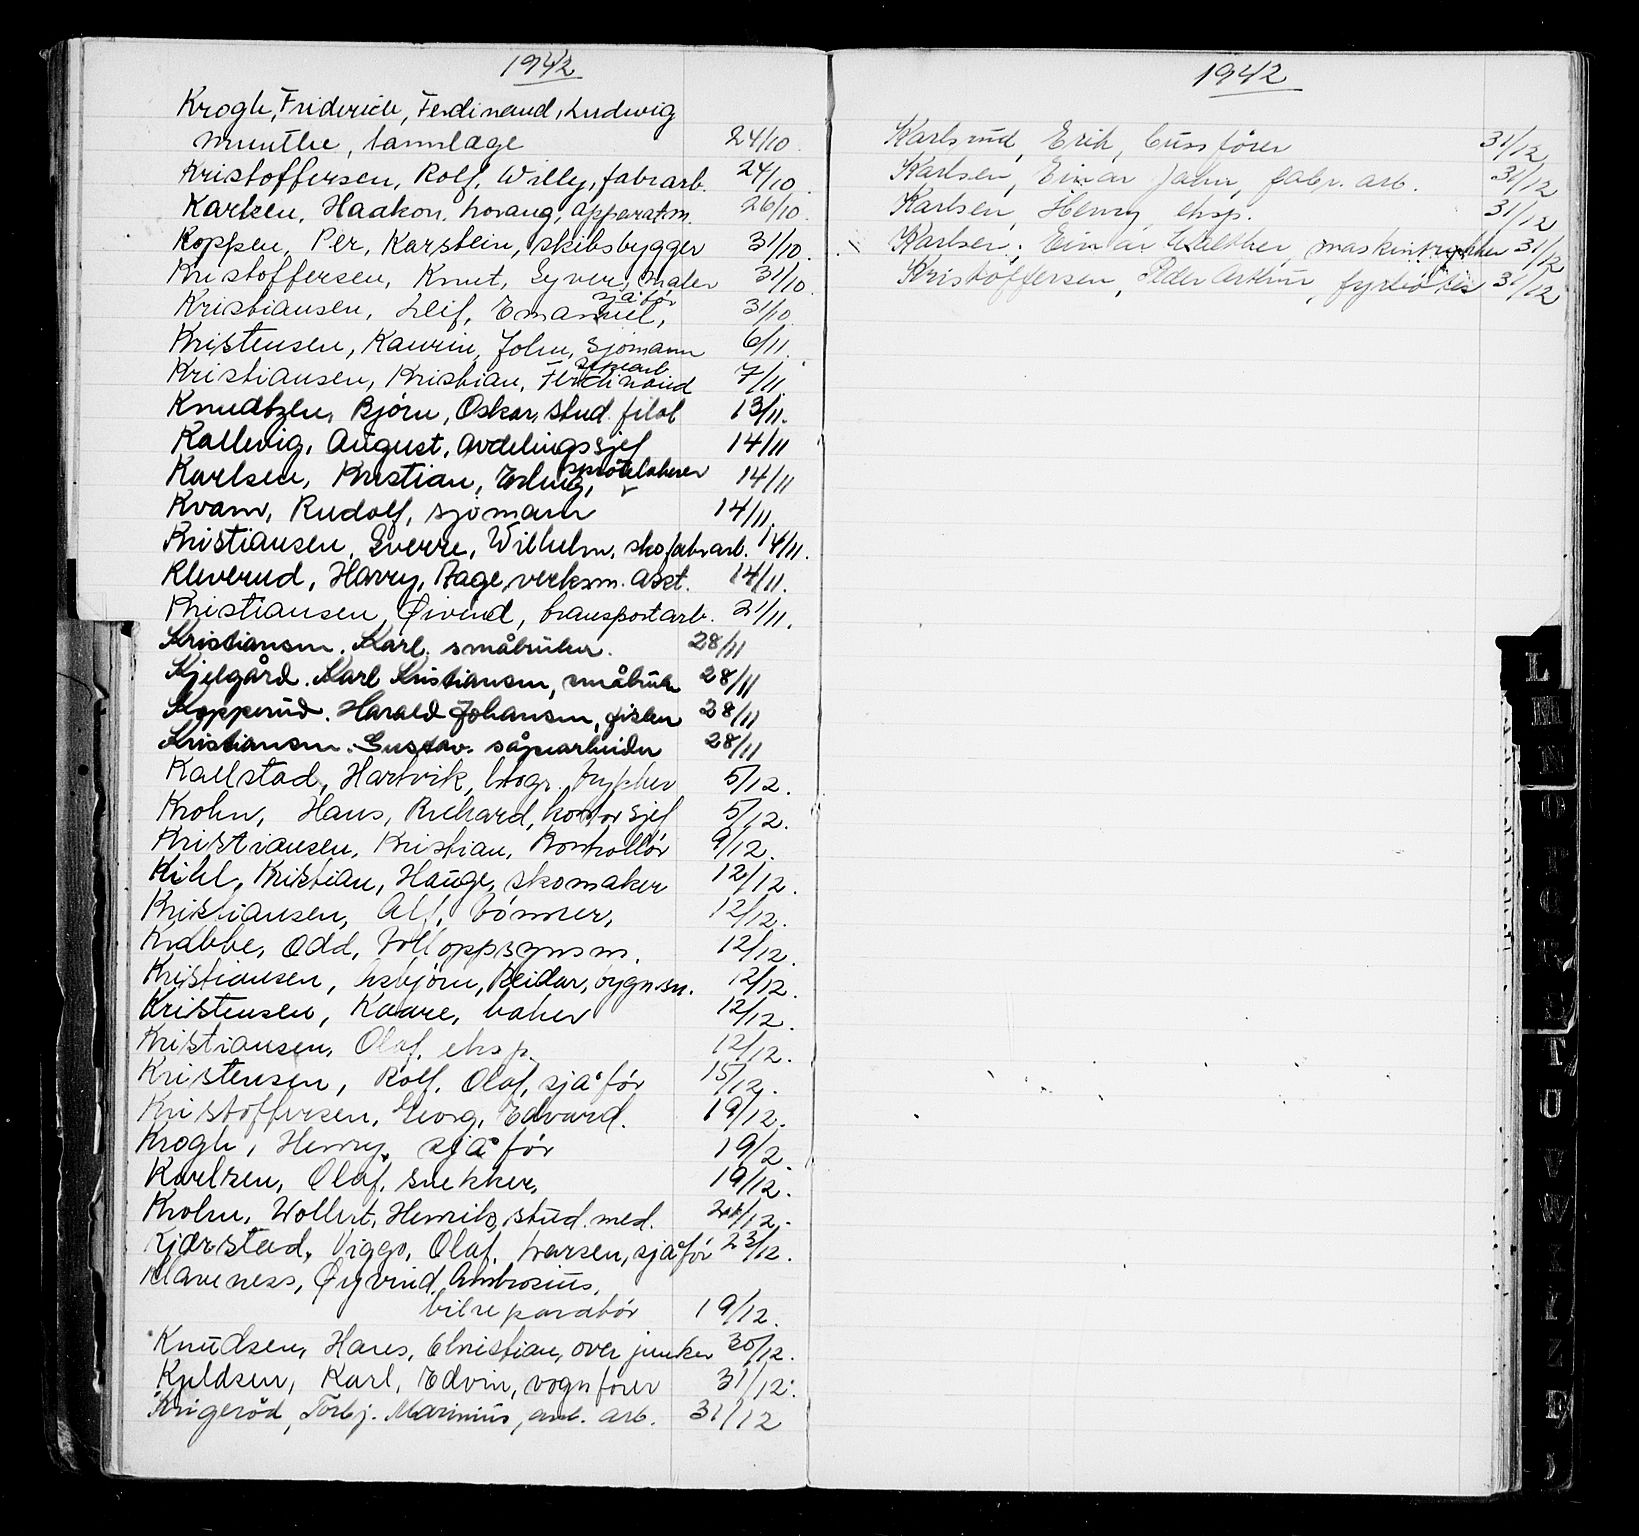 1942
Krogh, Friderich, Ferdinand, Ludwig
Munthe, tannlæge 24/10.
Kristoffersen, Rolf, Willy, fabr.arb. 24/10.
Karlsen, Haakon, apparatm. 26/10.
Koppen, Per, Karstein, skibsbygger 31/10.
Kristoffersen, Knut, Syver, maler 31/10.
Kristiansen, Leif, Emanuel, sjåfør 31/10
Kristensen, Kaurin, John, sjømann 6/11.
Kristiansen, Kristian, Ferdinand 7/11.
Knudtzen, Bjørn, Oskar, stud. filol 13/11.
Kallevig, August, avdelingssjef 14/11
Karlsen, Kristian, Erling, 14/11
Kvam, Rudolf, sjømann 14/11.
Kristiansen, Sverre, Wilhelm, skofabr.arb. 14/11.
Kleverud, Harry, Aage, verksm. asst. 14/11.
Kristiansen, Øivind, transportarb. 21/11.
Kristiansen. Karl. småbruker. 28/11
Kjelgård. Karl Kristiansen, småbruker 28/11
Kopperud. Harald Johansen, fisker 28/11
Kristiansen. Gustav. såpearbeider 28/11
Kallstad, Hartvik, litogr. trykker 5/12.
Krohn, Hans, Richard, kontorsjef 5/12.
Kristiansen, Kristian, Kontrollør 9/12.
Kihl, Kristian, Hauge, skomaker 12/12.
Kristiansen, Alf, tømmer, 12/12.
Krabbe, Odd, tolloppsynsm. 12/12.
Kristiansen, Asbjørn, Reidar, bygn.sn. 12/12.
Kristensen, Kaare, baker 12/12.
Kristiansen, Olaf, eksp. 12/12.
Kristensen, Rolf, Olaf, sjåfør 15/12.
Kristoffersen, Georg, Edvard. 19/12.
Krogh, Henry, sjåfør 19/2.
Karlsen, Olaf, snekker, 19/12.
Krohn, Wollert, Henrik, stud. med. /12.
Kjørstad, Viggo, Olaf, Larsen, sjåfør 23/12.
Klaveness, Øyvind, Ambrosius,
bilreparatør 19/12.
Knudsen, Hans, Christian, over junker 30/12.
Kjeldsen, Karl, Edvin, vognfører 31/12.
Krigerød, Torbj. Marinius, anl. arb. 31/12
1942
Karlsrud, Erik, bussfører 31/12
Karlsen, Einar John, fabr. arb. 31/12
Karlsen, Henry, eksp. 31/12
Karlsen, Einar Walther, maskintrykker 31/12
Kristoffersen, Peder Arthur, fyrbøter 31/12
L
M
N
O
P
Q
R
S
T
U
V
W
X
Y
Z